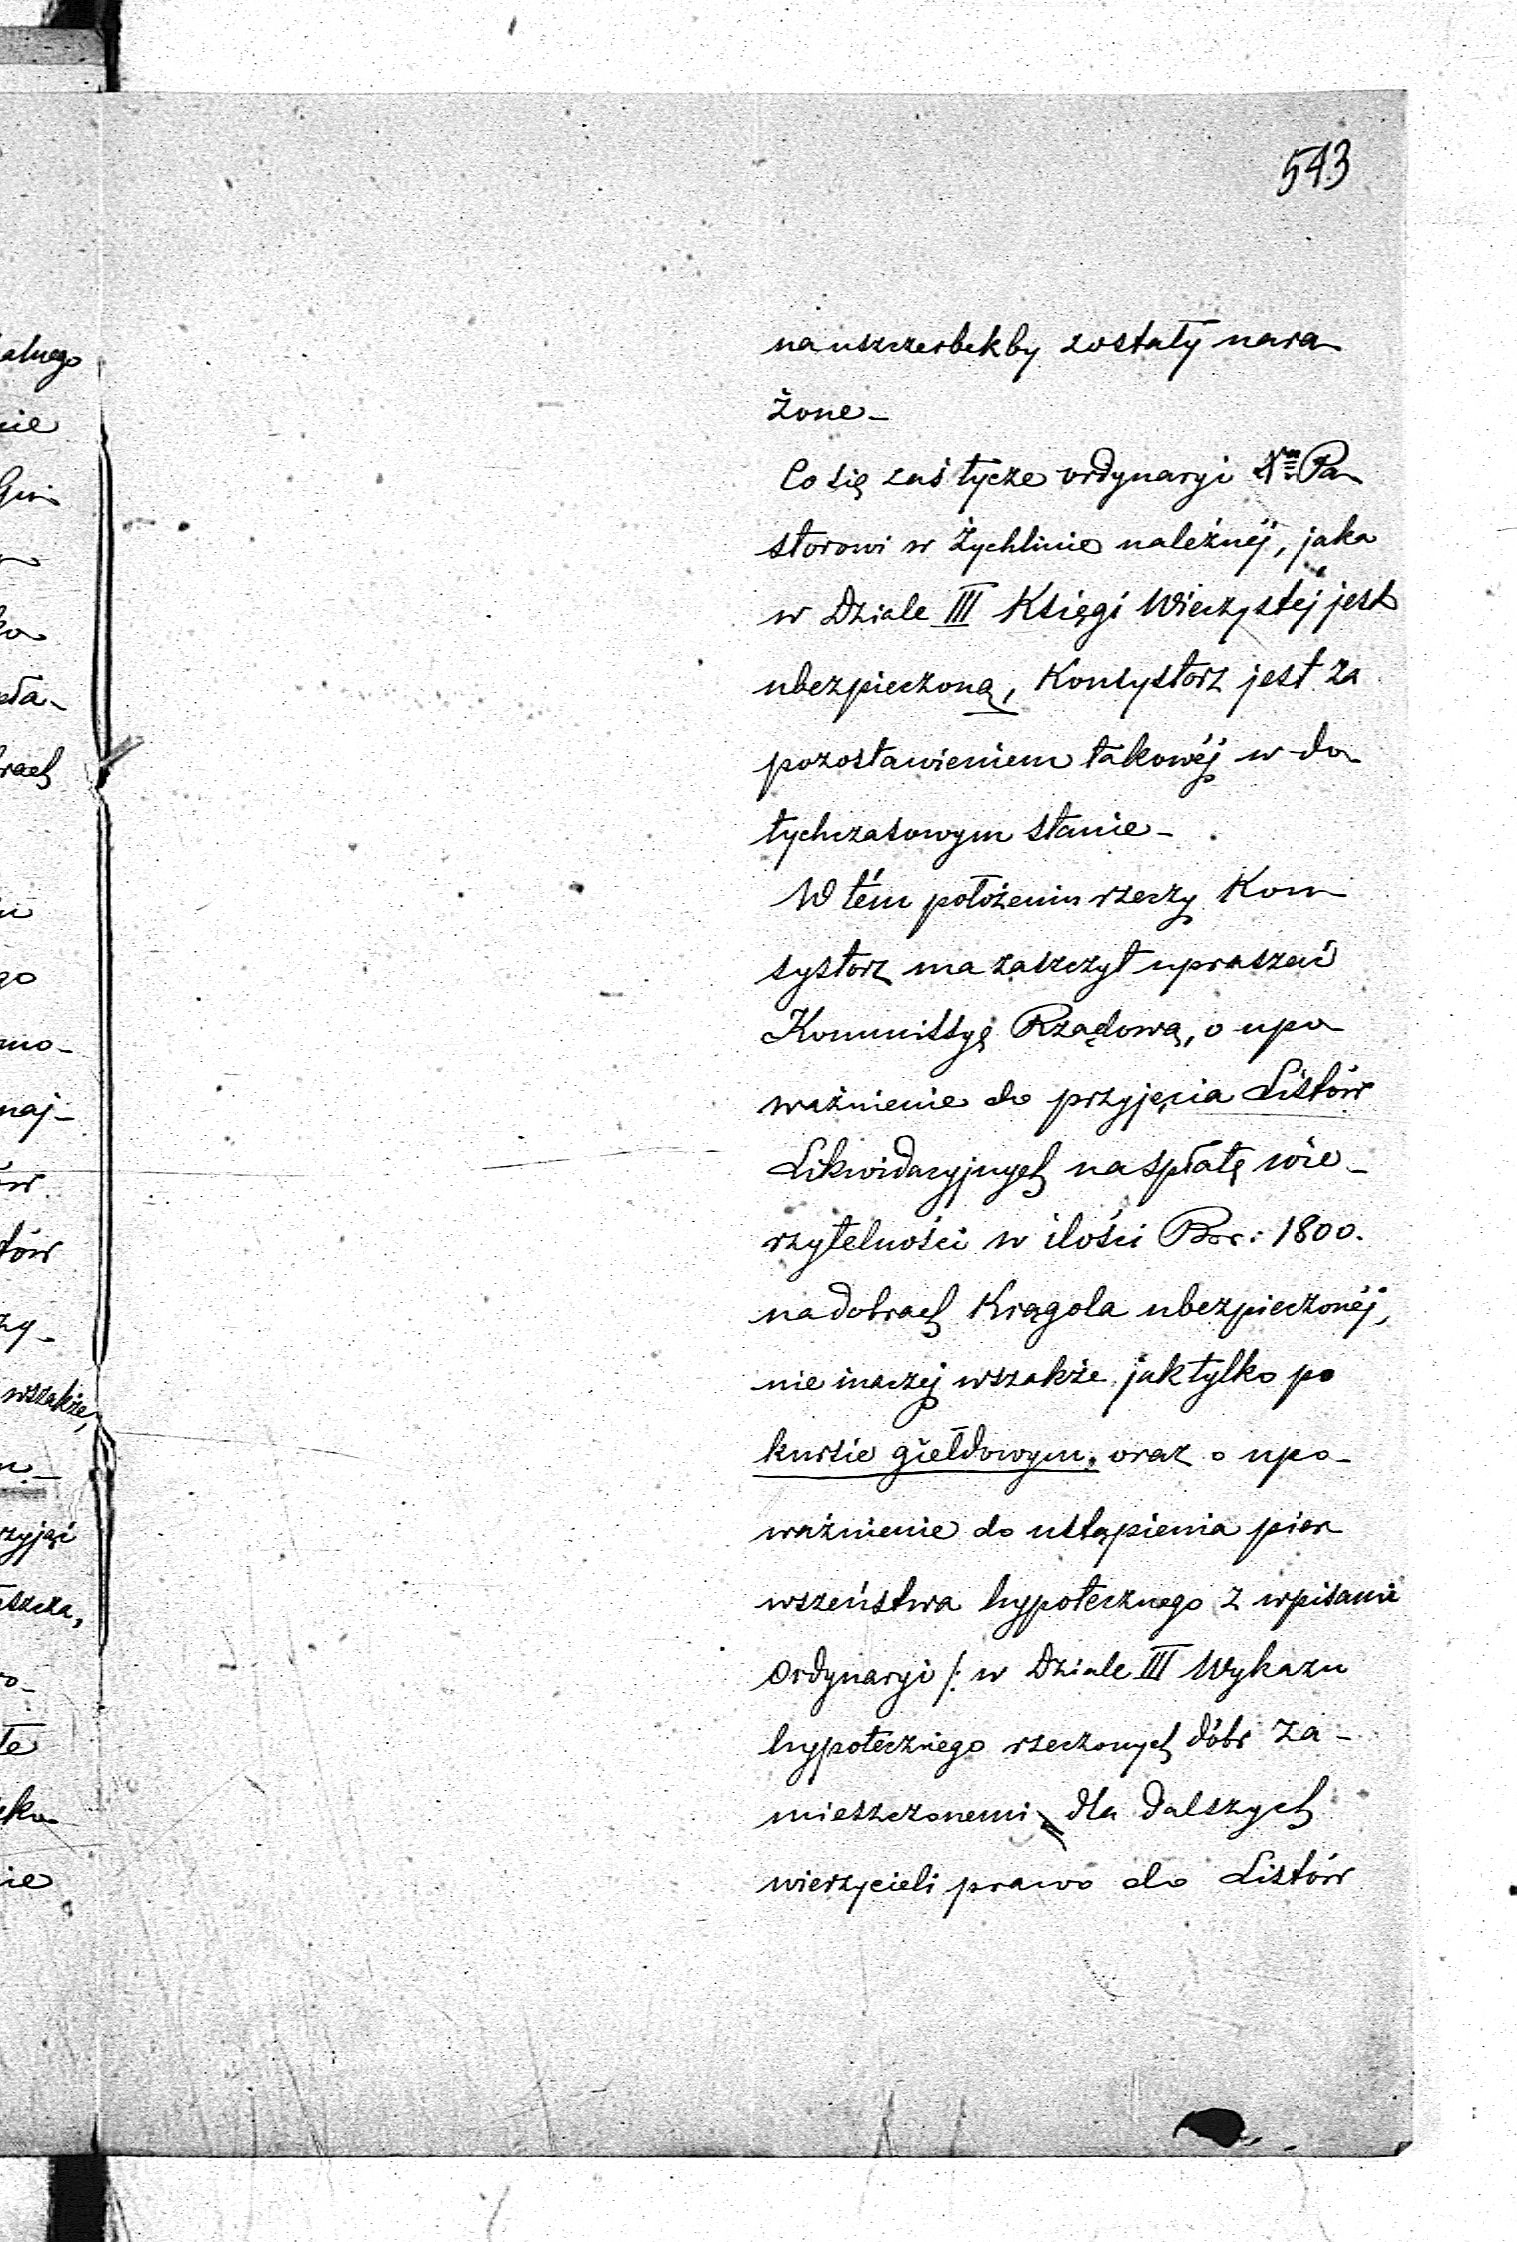 543
na uszczerbek by zostały nara
żone -
Co się zaś tycze ordynaryi Pa
storowi w Żychlinie należnéj, jaka
w Dziale III Księgi Wieczystéj jest
ubezpieczoną, Konsystorz jest za
pozostawieniem takowéj w do
tychczasowym stanie -
W tém położeniu rzeczy Kon
systorz ma zaszczyt upraszać
Kommissyę Rządową, o upo
ważnienie do przyjęcia Listów
Likwidacyjnych na spłatę wie-
rzytelności w ilości 1800.
na dobrach Krągola ubezpieczonéj,
nie inaczej wszakże jak tylko po
kursie giełdowym, oraz o upo-
ważnienie do ustąpienia pier
wszeństwa hypotecznego z wpisami
Ordynaryi /: w Dziale III Wykazu
hypotecznego rzeczonych dóbr za -
mieszczonemi dla dalszych
wierzycieli prawo do Listów
alnego
nie
pła-
rach
go
mo-
naj-
ów
tów
zy-
wszakże,
rzyjąć
szcza,
o-
te
nie